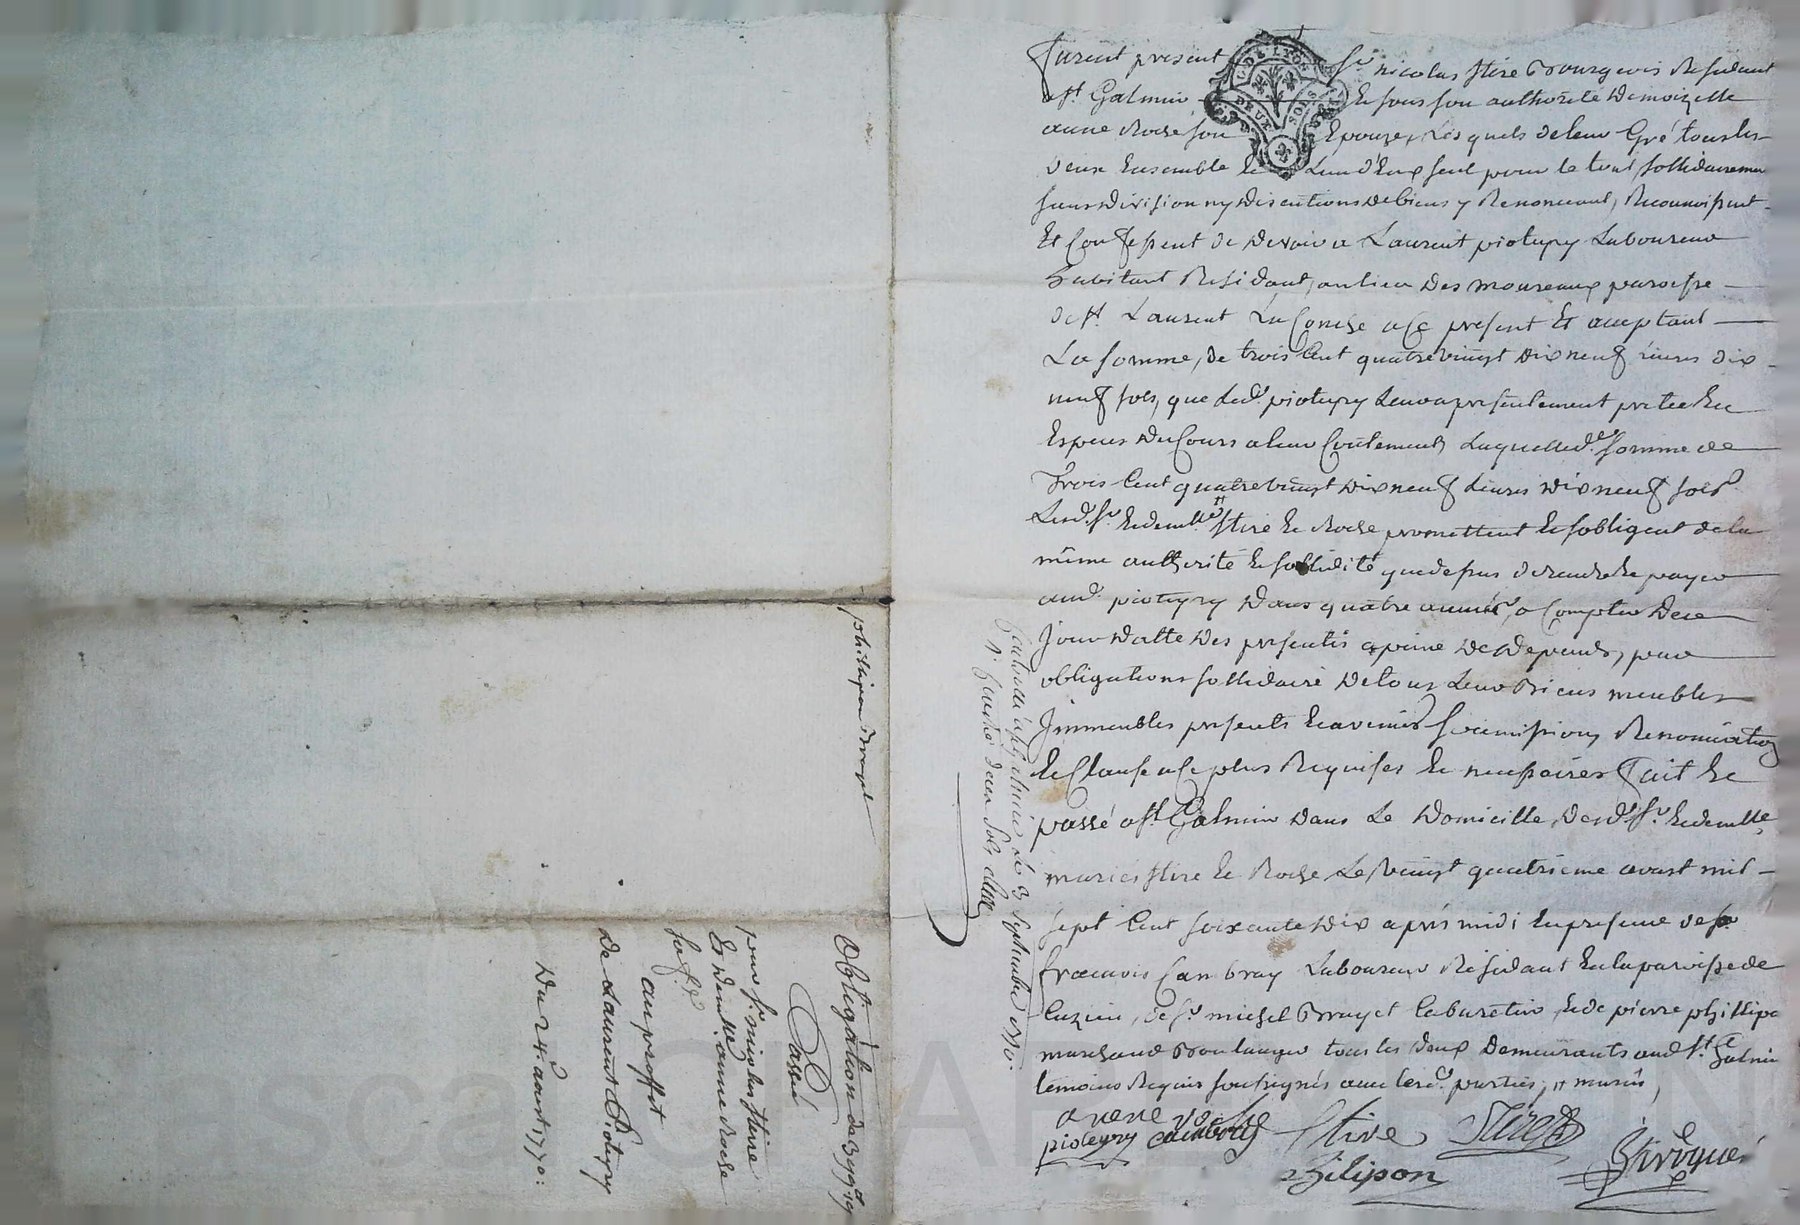 furent present Sr nicolas Stire Bourgeois Résidant
a St Galmier & sous son authorité Demoizelle
anne Roche son Epouze, Lesquels de leur Gré tous les
deux Ensemble & L'un d'Eux seul pour le tout, sollidairement
sans division ny discutions de biens y Renonceant, Reconnoissent
Et Confessent de devoir a Laurent pioteyry Laboureur
habitant Résidant, au lieu des moureaux paroisse
de St Laurent La Conche a Ce present Et aceptant
La somme, de trois Cent quatrevingt dix neuf livres dix
neuf sols, que led. pioteyry Leur a presentement pretée En
Especes du Cours a leur Contement, Laquelle d. somme de
Trois Cent quatrevingt dix neuf Livres dix neuf sols
Lesd. Sr & demlle Stire & Roche promettent & sobligent de la
même authorité & sollidité que dessus de rendre & payer
aud. pioteyry dans quatre années a Compter de ce
Jour datte des presentes a peine de depends, par
obligations sollidaire de tous Leurs Biens meubles
Immeubles presents & avenirs soumissions Renonciation
& Clause a Ce plus Requises & necessaires fait &
passé a St Galmier dans Le domicille, desd. Sr & demlle
mariés Stire & Roche Le vingt quatrieme aoust mil
sept Cent soixante dix aprés midi En presence de Sr
francois Cambray Laboureur Résidant En la paroisse de
Cuzieu, de Sr michel Bruyet Cabaretier, & de pierre phillipon
marchand Boulanger tous les deux demeurants aud. St Galmier
temoins Requis soussignés avec lesd. parties, # mariés
anne roche
pioteyry cambray Stire
philipon
Controllé a St Galmier le 3 Septembre 1770.
phillipon Bruyet
Obligation de 399lt 19
Passée
par Sr nicolas Stire
Et demlle anne Roche
sa fe
au proffit
de Laurent Pioteyry
Du 24. aoust 1770:
G. DE LYON
DEUX SOLS